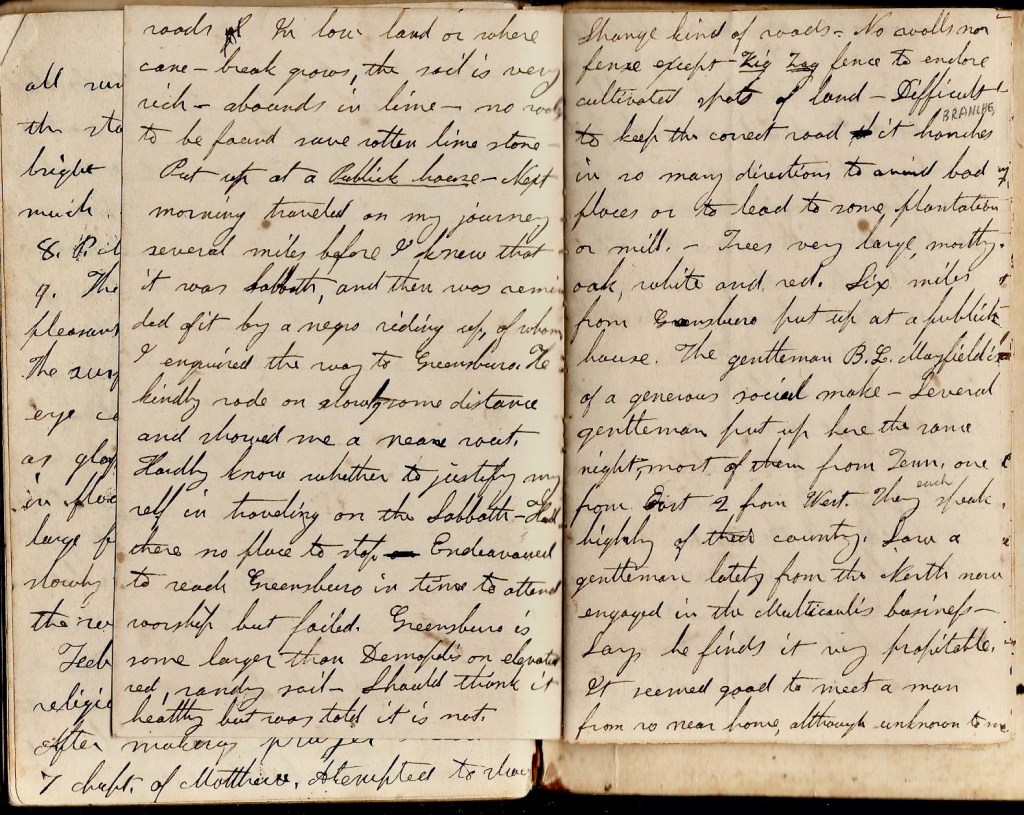 all
the
bright
much
8. P.
9. The
pleasant
The
eye
as
in
large
slowly
the
religi
roads In low land or where
cane-break grows, the soil is very
rich - abounds in lime - no
to be found save rotten lime stone -
Put up at a Publick house - Next
morning traveled on my journey
several miles before I knew that
it was Sabbath, and then was remin
ded of it by a negro riding up, of whom
I enquired the way to Greensburo. He
kindly rode on slowly some distance
and showed me a near rout.
Hardly know whether to justify my
self in traveling on the Sabbath - Had
there no place to stop Endeavoured
to reach Greensburo in time to attend
worship but failed. Greensburo is
some larger than Demopolis on elevated
red, sandy soil - Should think it
healthy but was told it is not.
After making prayer
7 chapt. of Matthew. Attempted to show
Strange kind of roads - No walls nor
fense except - Zig Zag fence to enclose
cultivated spots of land - Difficult
BRANCHES
to keep the correct road it branches
in so many directions to avoid bad
places or to lead to some plantation
or mill. - Trees very large, mostly
oak, white and red. Six miles
from Greensburo put up at a publick
house. The gentleman B. L. Mayfield is
of a generous social make - Several
gentleman put up here the same
night, most of them from Tenn, one
from East 2 from West. They each speak
highly of their country. Saw a
gentleman lately from the North now
engaged in the Multicaulis business -
Says he finds it very profitable.
It seemed good to meet a man
from so near home, although unknown to me